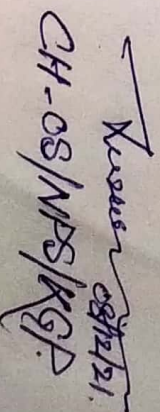 08/12/21
CH-OS/NPS/KGP